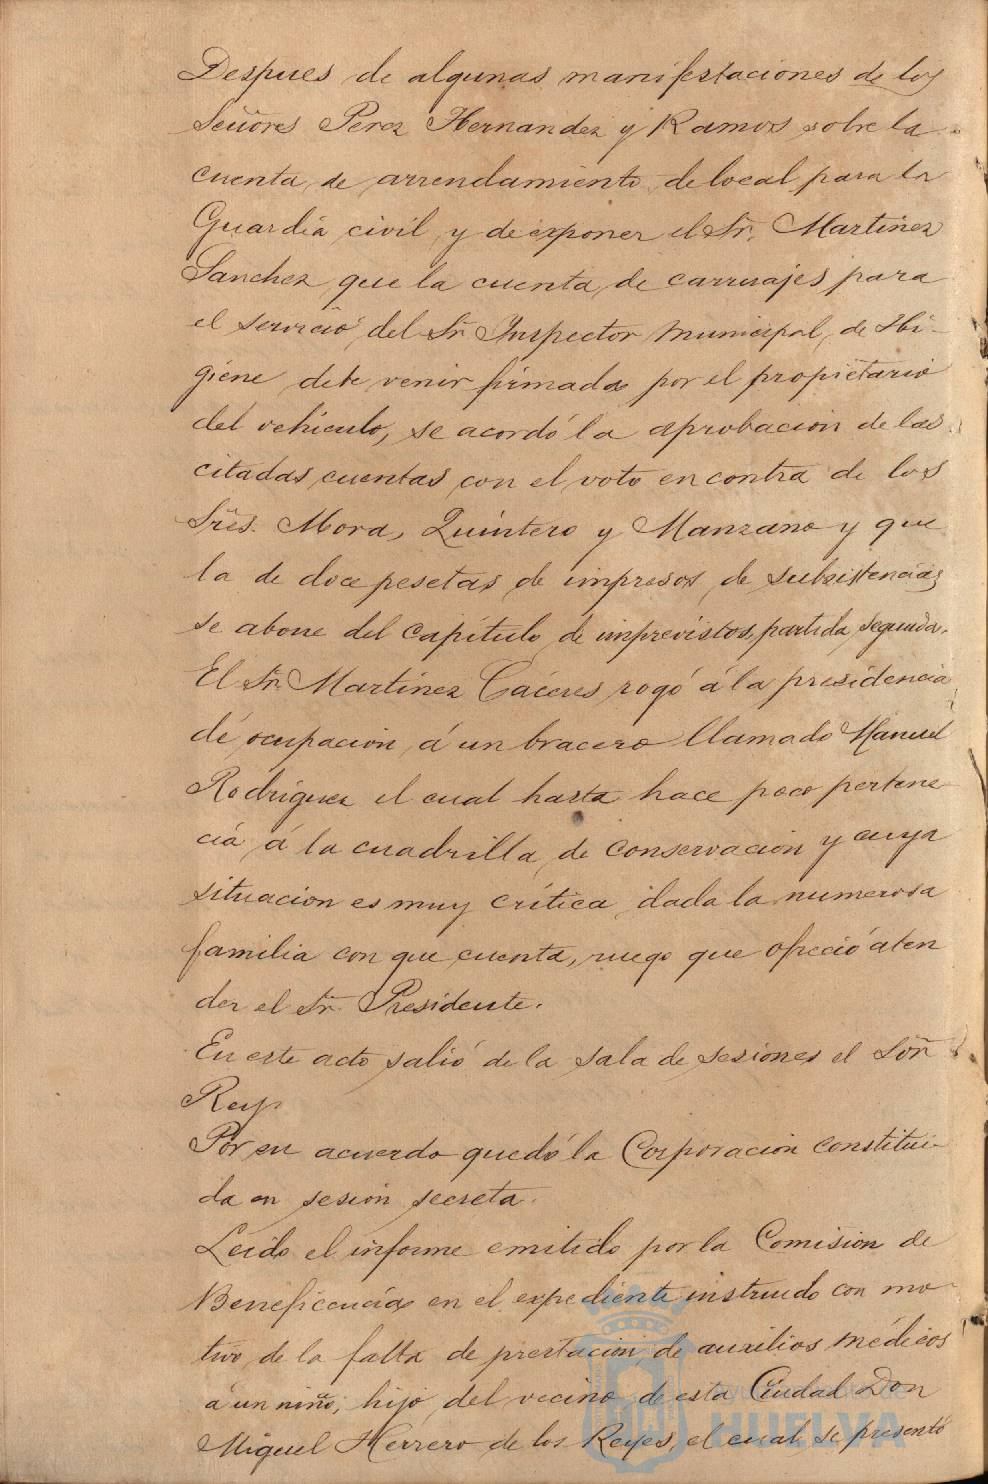 Despues de algunas manifestaciones de los
Señores Perez Hernandez y Ramos sobre la
cuenta de arrendamiento de local para la
Guardia civil y de exponer el Sr. Martinez
Sanchez que la cuenta de carruajes para
el servicio del Sr Inspector Municipal de Hi-
giene debe venir firmada por el propietario
del vehiculo, se acordó la aprobacion de las
citadas cuentas con el voto en contra de los
Sres. Mora, Quintero y Manzano y que
la de doce pesetas de impresos de subsistencias
se abone del capitulo de imprevistos, partida segunda.
El Sr. Martinez Cáceres rogó á la presidencia
dé ocupacion á un bracero llamado Manuel
Rodriguez el cual hasta hace poco pertene-
cia á la cuadrilla de conservacion y cuya
situacion es muy crítica dada la numerosa
familia con que cuenta, ruego que ofreció aten
der el Sr. Presidente.
En este acto salió de la sala de sesiones el Sor
Rey.
Por su acuerdo quedó la Corporacion constitui-
da en sesion secreta.
Leido el informe emitido por la Comision de
Beneficencia en el expediente instruido con mo-
tivo de la falta de prestacion de auxilios médicos
á un niño, hijo del vecino de esta Ciudad Don
Miguel Herrero de los Reyes, el cual se presentó
HUELVA